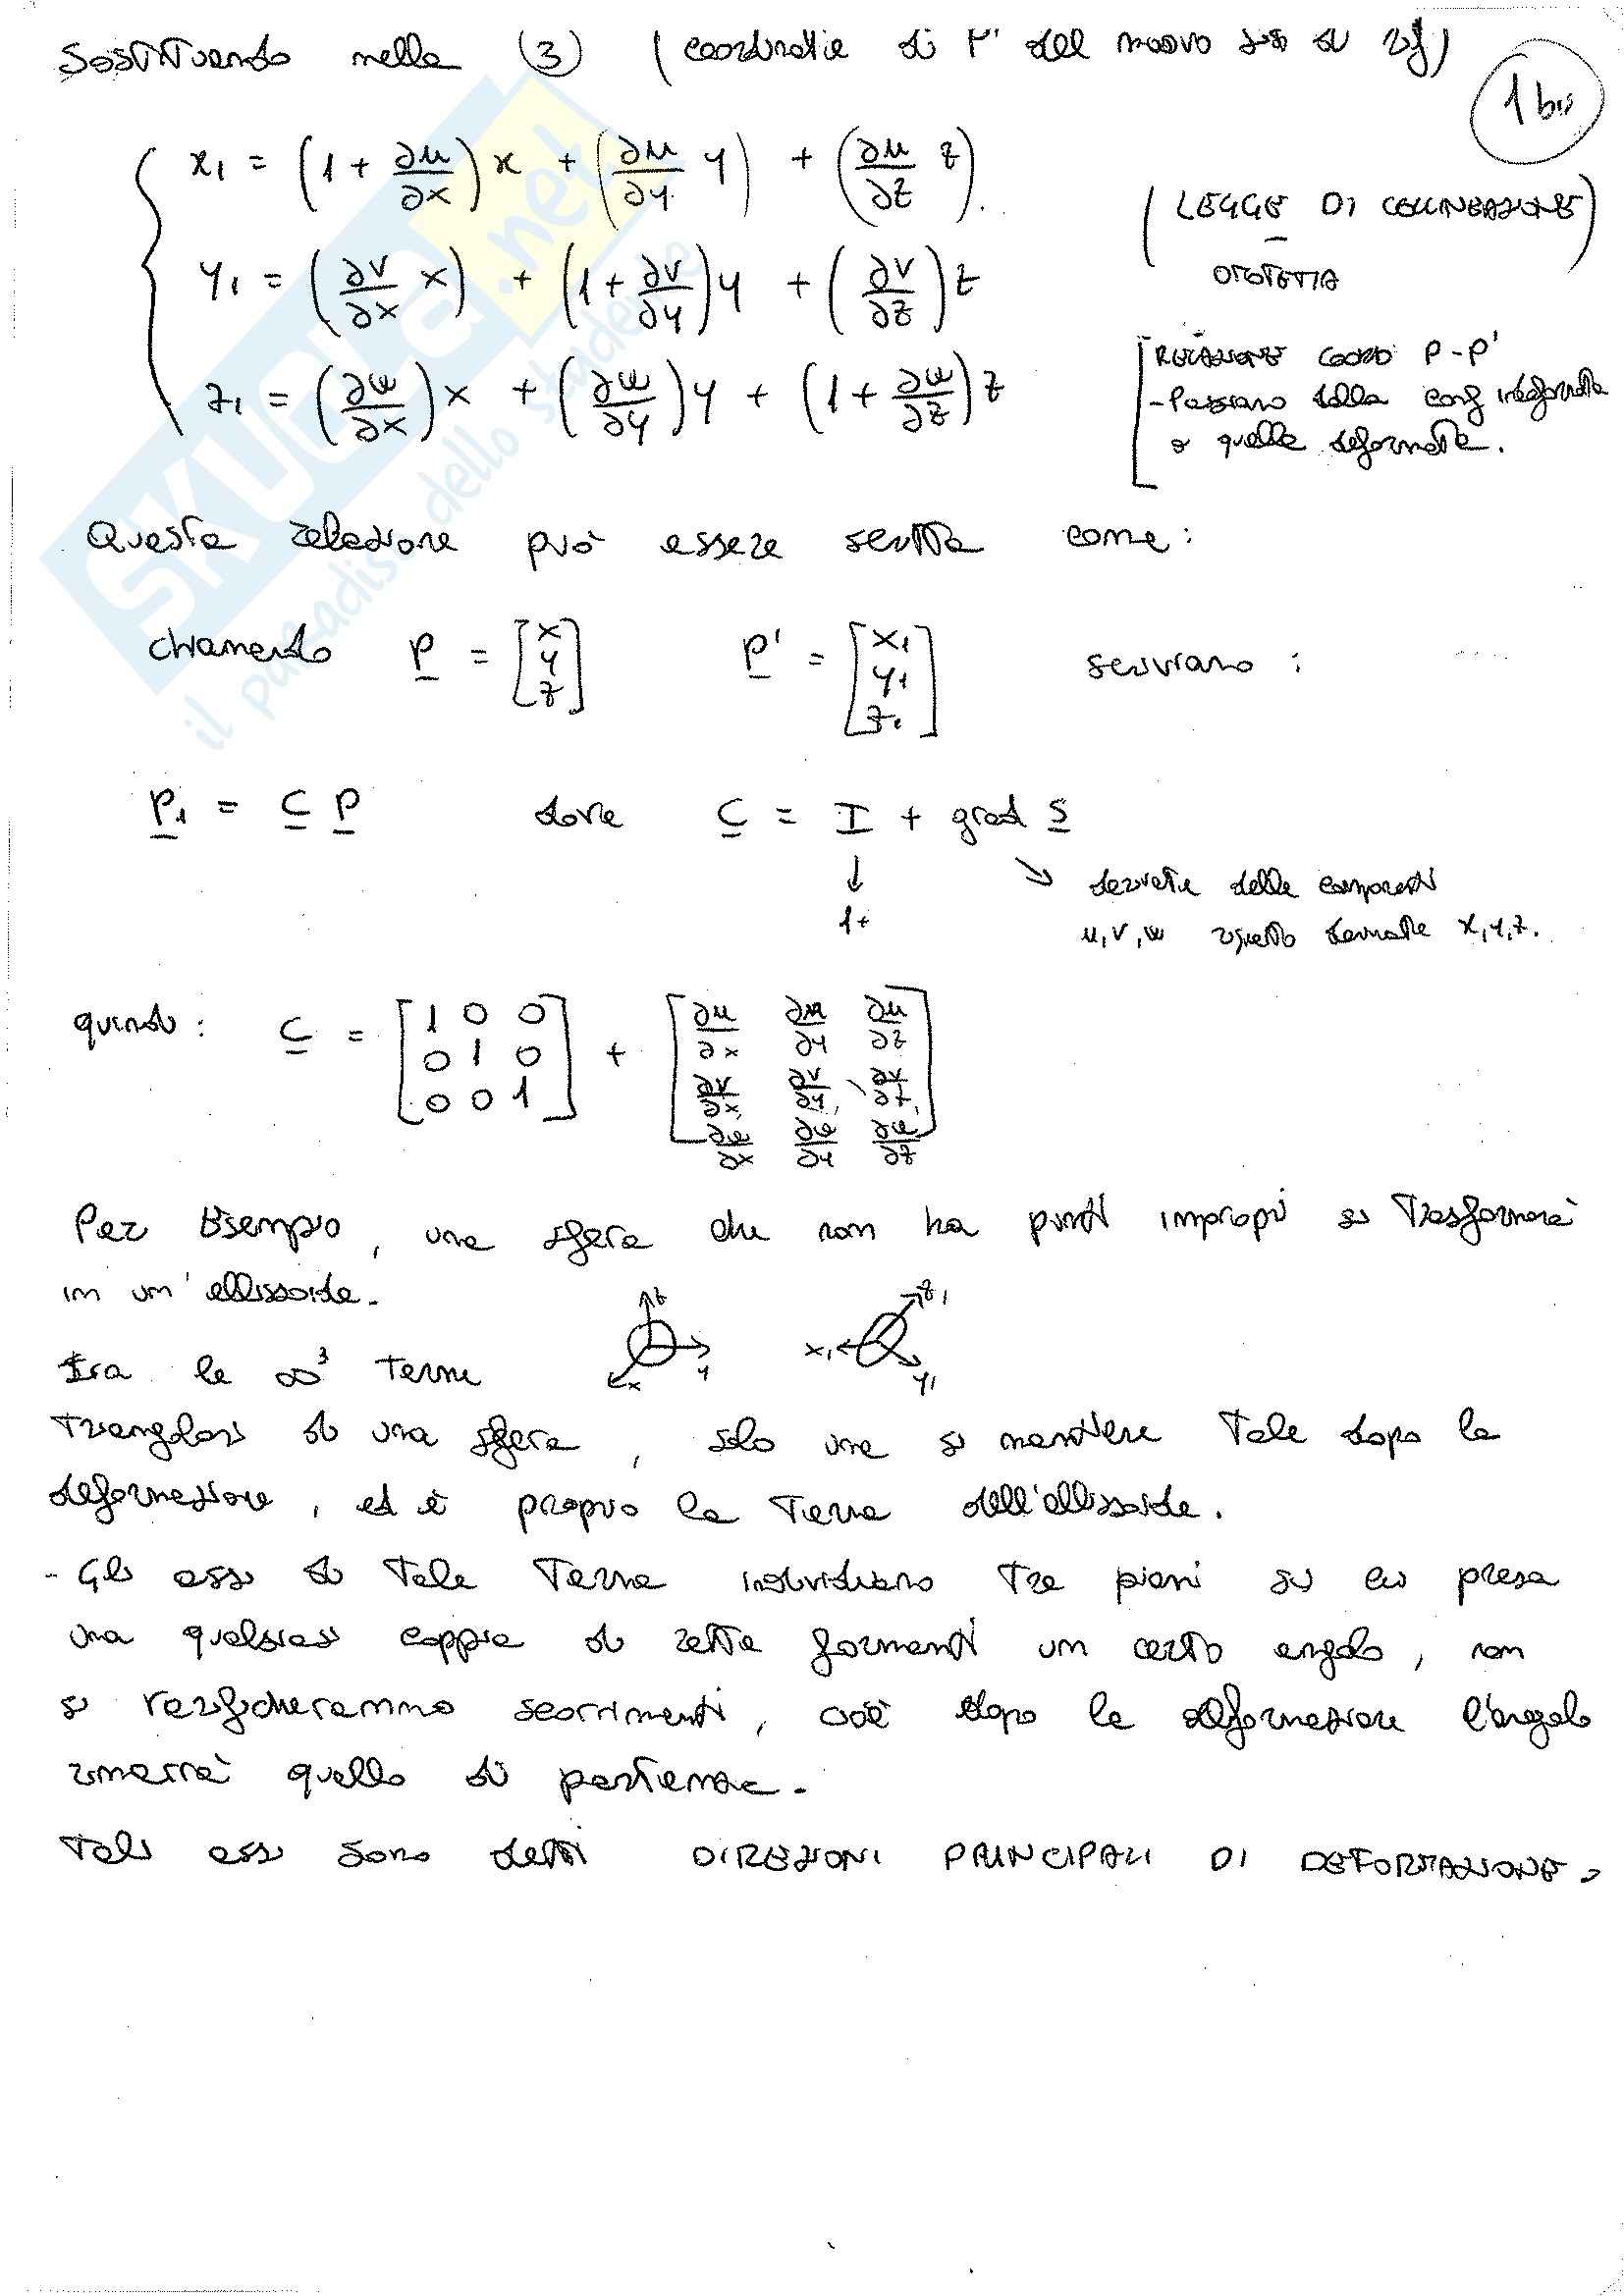 Sostituendo nella (3) (coordinate di P' del nuovo sis di rif)
1 bis
x₁ = (1 + ∂u/∂x) x + (∂u/∂y y) + (∂u/∂z z).
(LEGGE DI COLLINEAZIONE)
y₁ = (∂v/∂x x) + (1 + ∂v/∂y) y + (∂v/∂z) z
z₁ = (∂w/∂x) x + (∂w/∂y) y + (1 + ∂w/∂z) z
[RELAZIONE COORD P-P'
- Passiamo dalla conf indeformata
a quella deformata.
Questa relazione può essere scritta come:
chiamando P = [x y z] P' = [x₁ y₁ z₁] scriviamo:
P₁ = C P dove C = I + grad S
↓ ↘ derivate delle componenti
1+ u, v, w rispetto x, y, z.
quindi: C = [1 0 0; 0 1 0; 0 0 1] + [∂u/∂x ∂u/∂y ∂u/∂z; ∂v/∂x ∂v/∂y ∂v/∂z; ∂w/∂x ∂w/∂y ∂w/∂z]
Per Esempio, una sfera che non ha punti impropri si trasformerà
in un'ellissoide.
z y x
z₁ x₁ y₁
Fra le ∞³ terne
triangolari di una sfera, solo una si mantiene tale dopo la
deformazione, ed è proprio la terna dell'ellissoide.
- Gli assi di tale terna individuano tre piani su cui presa
una qualsiasi coppia di rette formanti un certo angolo, non
si verificheranno scorrimenti, cioè dopo la deformazione l'angolo
rimarrà quello di partenza.
Tali assi sono detti DIREZIONI PRINCIPALI DI DEFORMAZIONE.
SKUOLA.net
il paradiso dello studente